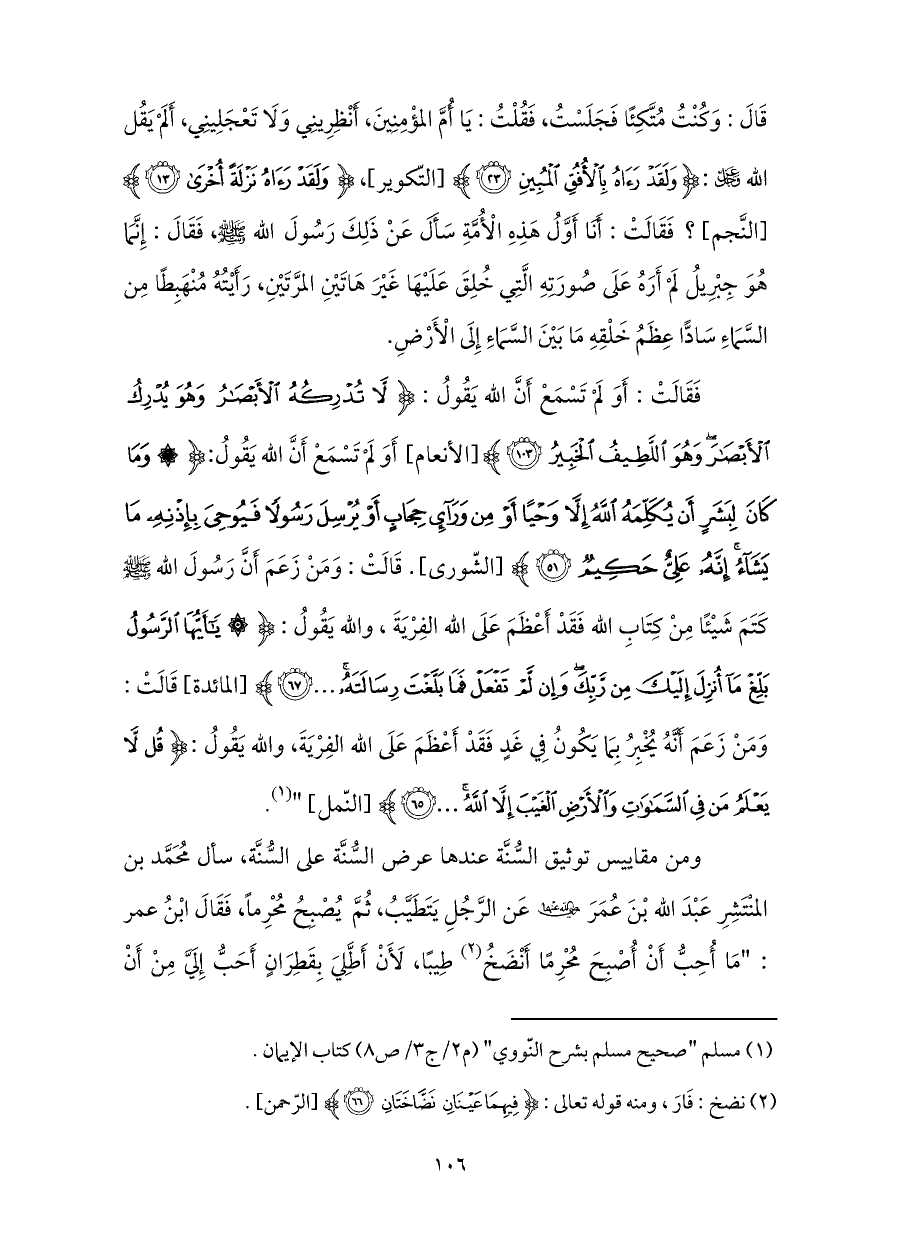 قَالَ : وَكُنْتُ مُتَّكِئًا فَجَلَسْتُ، فَقُلْتُ : يَا أُمَّ المؤْمِنِينَ، أَنْظِرِينِي وَلَا تَعْجَلِينِي، أَلَمْ يَقُل
الله ﷻ :﴿ وَلَقَدۡ رَءَاهُ بِٱلۡأُفُقِ ٱلۡمُبِينِ ٢٣ ﴾ [التّكوير]، ﴿ وَلَقَدۡ رَءَاهُ نَزۡلَةً أُخۡرَىٰ ١٣ ﴾
[النَّجم] ؟ فَقَالَتْ : أَنَا أَوَّلُ هَذِهِ الْأُمَّةِ سَأَلَ عَنْ ذَلِكَ رَسُولَ الله ﷺ، فَقَالَ : إِنَّمَا
هُوَ جِبْرِيلُ لَمْ أَرَهُ عَلَى صُورَتِهِ الَّتِي خُلِقَ عَلَيْهَا غَيْرَ هَاتَيْنِ المرَّتَيْنِ، رَأَيْتُهُ مُنْهَبِطًا مِن
السَّمَاءِ سَادًّا عِظَمُ خَلْقِهِ مَا بَيْنَ السَّمَاءِ إِلَى الْأَرْضِ.
فَقَالَتْ : أَوَ لَمْ تَسْمَعْ أَنَّ الله يَقُولُ : ﴿ لَّا تُدۡرِكُهُ ٱلۡأَبۡصَٰرُ وَهُوَ يُدۡرِكُ
ٱلۡأَبۡصَٰرَۖ وَهُوَ ٱللَّطِيفُ ٱلۡخَبِيرُ ١٠٣ ﴾[الأنعام] أَوَ لَمْ تَسْمَعْ أَنَّ الله يَقُولُ:﴿ ۞ وَمَا
كَانَ لِبَشَرٍ أَن يُكَلِّمَهُ ٱللَّهُ إِلَّا وَحۡيًا أَوۡ مِن وَرَآيِٕ حِجَابٍ أَوۡ يُرۡسِلَ رَسُولًا فَيُوحِيَ بِإِذۡنِهِۦ مَا
يَشَآءُۚ إِنَّهُۥ عَلِيٌّ حَكِيمٌ ٥١ ﴾ [الشّورى]. قَالَتْ : وَمَنْ زَعَمَ أَنَّ رَسُولَ الله ﷺ
كَتَمَ شَيْئًا مِنْ كِتَابِ الله فَقَدْ أَعْظَمَ عَلَى الله الفِرْيَةَ ، والله يَقُولُ : ﴿ ۞ يَٰٓأَيُّهَا ٱلرَّسُولُ
بَلِّغۡ مَآ أُنزِلَ إِلَيۡكَ مِن رَّبِّكَۖ وَإِن لَّمۡ تَفۡعَلۡ فَمَا بَلَّغۡتَ رِسَالَتَهُۥۚ ...٦٧ ﴾ [المائدة] قَالَتْ :
وَمَنْ زَعَمَ أَنَّهُ يُخْبِرُ بِمَا يَكُونُ فِي غَدٍ فَقَدْ أَعْظَمَ عَلَى الله الفِرْيَةَ، والله يَقُولُ :﴿ قُل لَّا
يَعۡلَمُ مَن فِي ٱلسَّمَٰوَٰتِ وَٱلۡأَرۡضِ ٱلۡغَيۡبَ إِلَّا ٱللَّهُۚ ...٦٥ ﴾ [النّمل] "(١).
ومن مقاييس توثيق السُّنَّة عندها عرض السُّنَّة على السُّنَّة، سأل مُحَمَّد بن
المنْتَشِرِ عَبْدَ الله بْنَ عُمَرَ رضي الله عنهما عَن الرَّجُلِ يَتَطَيَّبُ، ثُمَّ يُصْبِحُ مُحْرِماً، فَقَالَ ابْنُ عمر
: "مَا أُحِبُّ أَنْ أُصْبِحَ مُحْرِمًا أَنْضَخُ(٢) طِيبًا، لَأَنْ أَطَّلِيَ بِقَطِرَانٍ أَحَبُّ إِلَيَّ مِنْ أَنْ
(١) مسلم "صحيح مسلم بشرح النّووي" (م٢/ ج٣/ ص٨) كتاب الإيمان .
(٢) نضخ : فَارَ ، ومنه قوله تعالى : ﴿ فِيهِمَا عَيۡنَانِ نَضَّاخَتَانِ ٦٦ ﴾ [الرّحمن] .
١٠٦